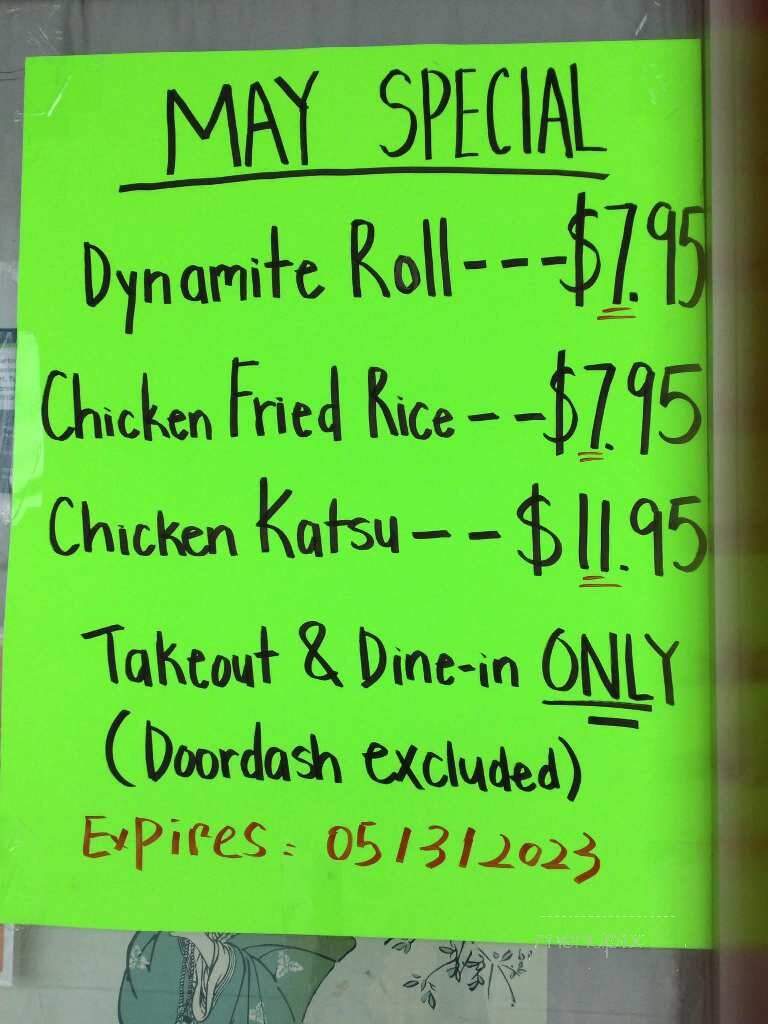 MAY SPECIAL
Dynamite Roll---$7.95
Chicken Fried Rice--$7.95
Chicken Katsu--$11.95
Takeout & Dine-in ONLY
(Doordash excluded)
Expires: 05/31/2023